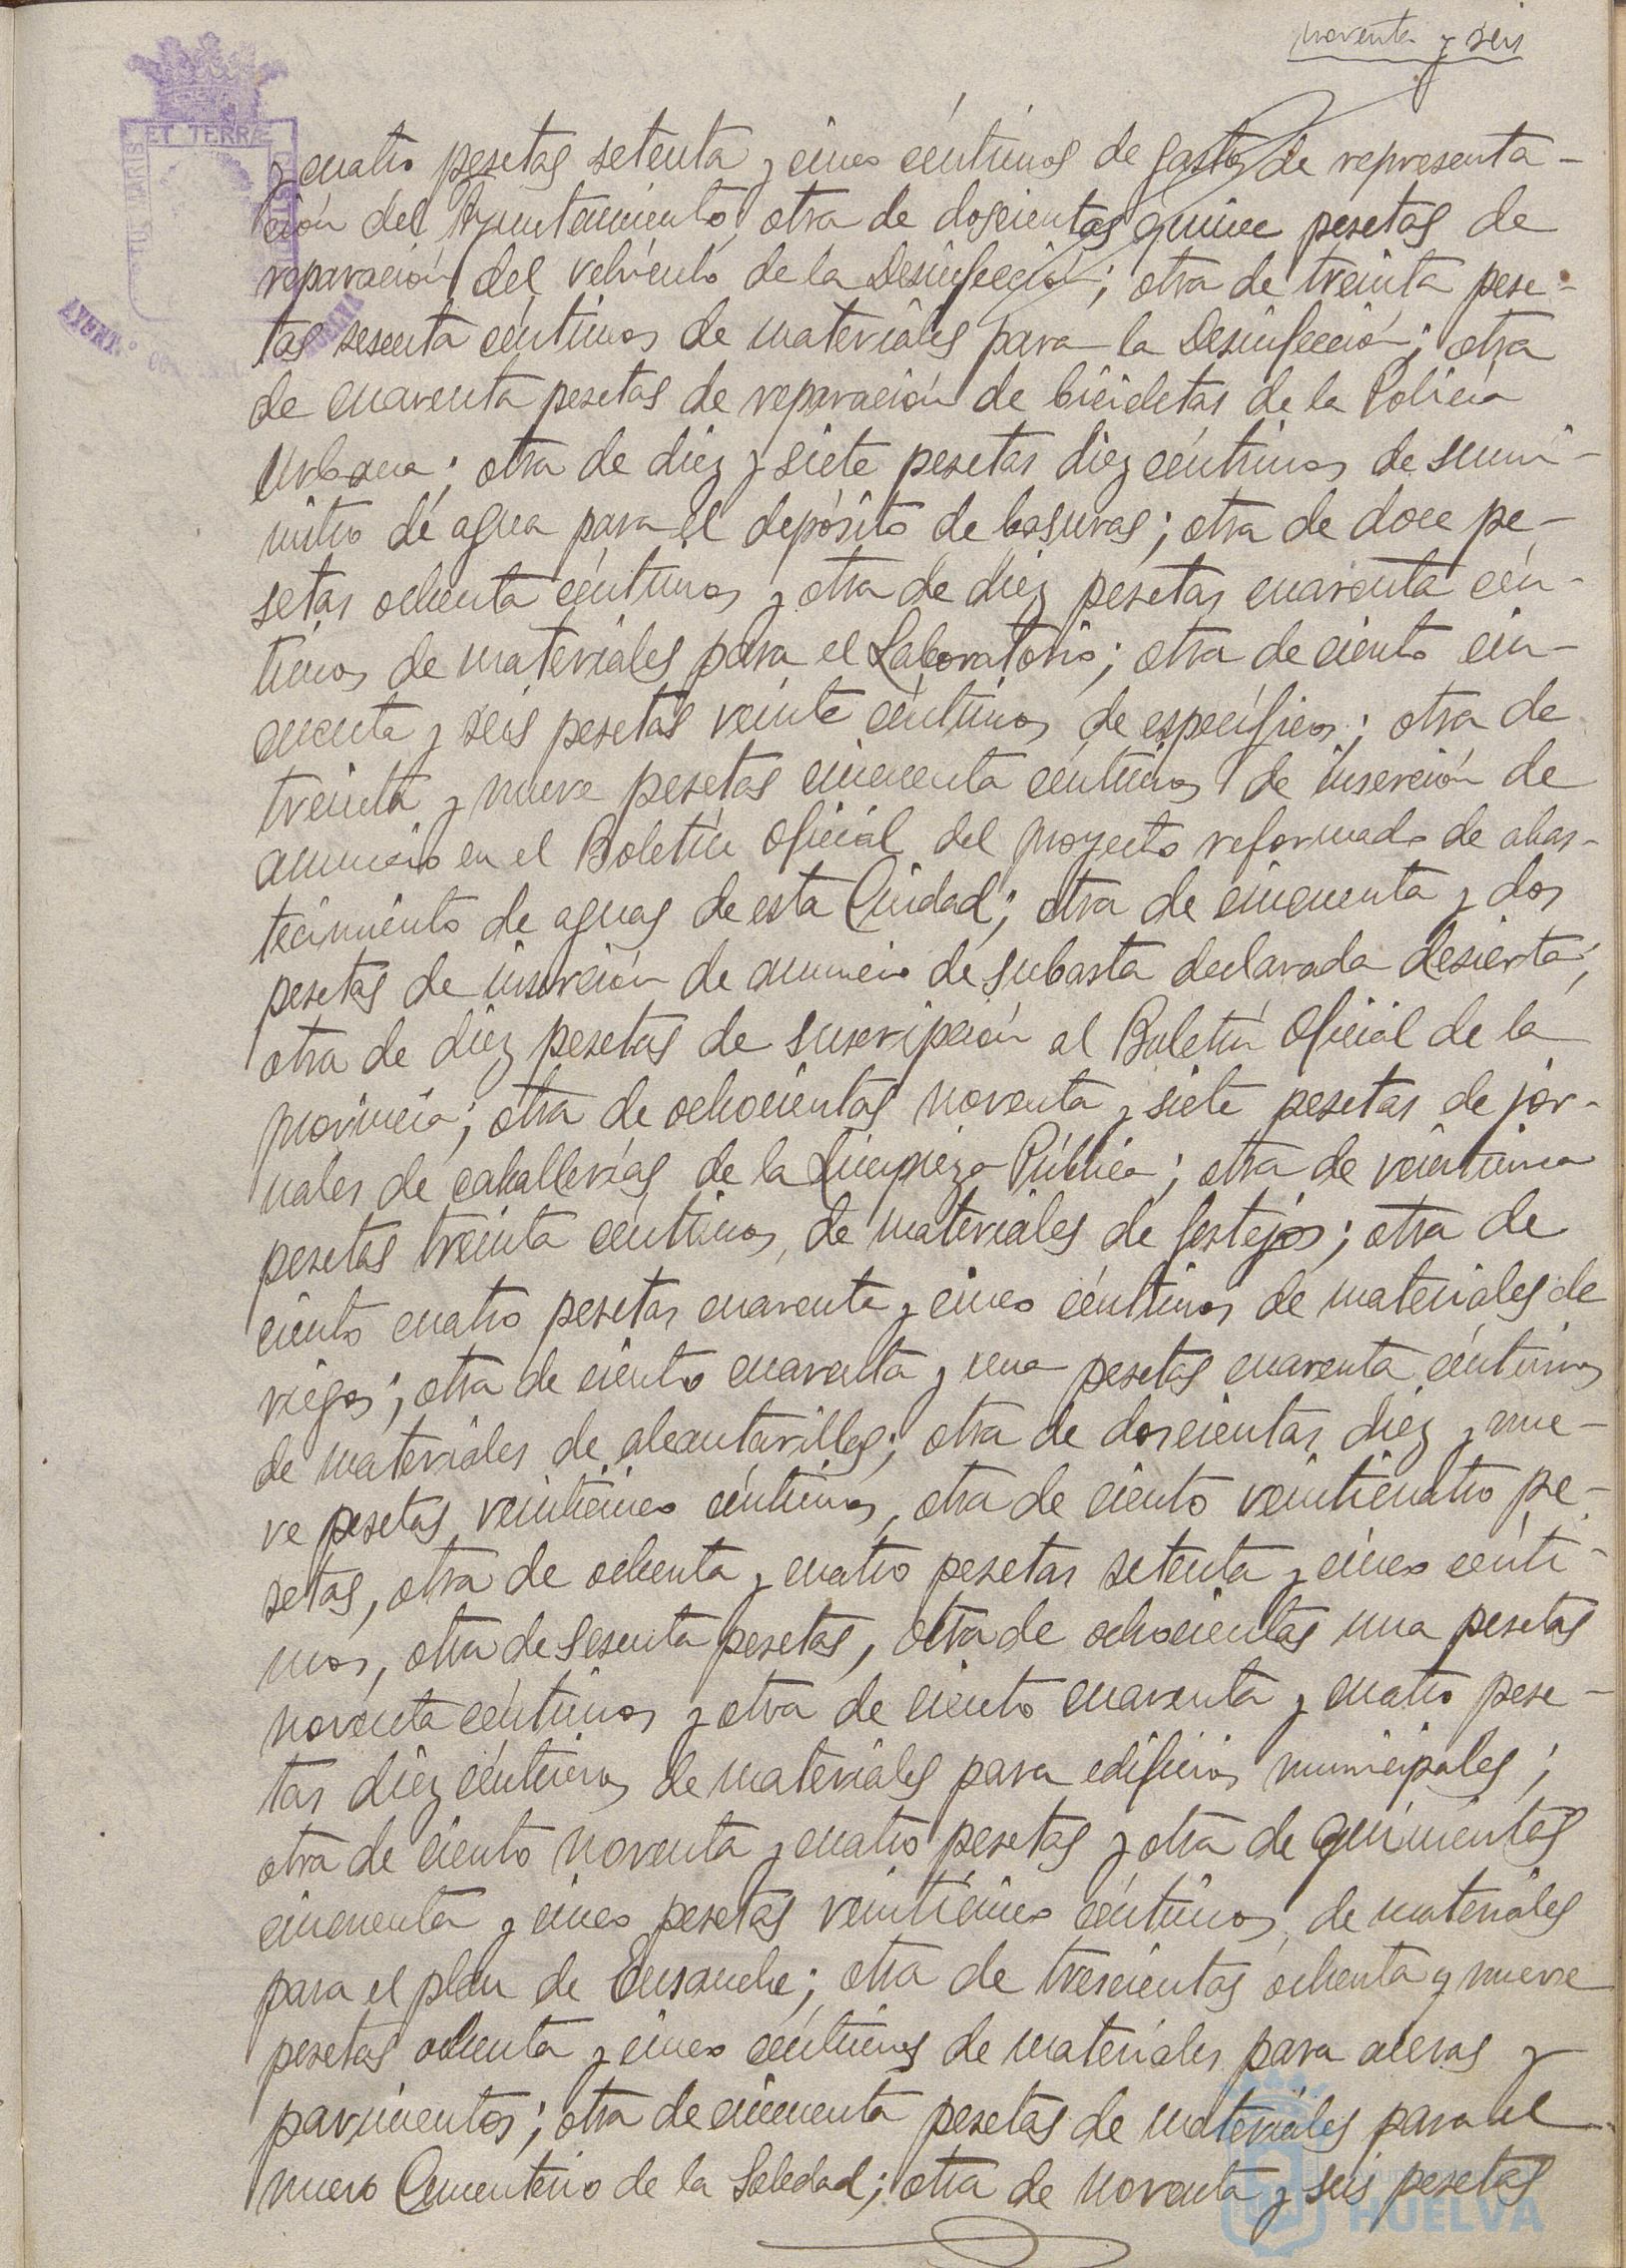 noventa y seis
y cuatro pesetas setenta y cinco céntimos de gastos de representa-
ción del Ayuntamiento, otra de doscientas quince pesetas de
reparación del vehículo de la Desinfección; otra de treinta pese-
tas sesenta céntimos de materiales para la Desinfección; otra
de cuarenta pesetas de reparación de bicicletas de la Policía
Urbana; otra de diez y siete pesetas diez céntimos de sumi-
nistro de agua para el depósito de basuras; otra de doce pe-
setas ochenta céntimos y otra de diez pesetas cuarenta cén-
timos de materiales para el Laboratorio; otra de ciento cin-
cuenta y seis pesetas veinte céntimos de específicos; otra de
treinta y nueve pesetas cincuenta céntimos de inserción de
anuncio en el Boletín Oficial del proyecto reformado de abas-
tecimiento de aguas de esta Ciudad; otra de cincuenta y dos
pesetas de inserción de anuncio de subasta declarada desierta;
otra de diez pesetas de suscripción al Boletín Oficial de la
provincia; otra de ochocientas noventa y siete pesetas de jor-
nales de caballerías de la Limpieza Pública; otra de veintiuna
pesetas treinta céntimos, de materiales de festejos; otra de
ciento cuatro pesetas cuarenta y cinco céntimos de materiales de
riegos; otra de ciento cuarenta y una pesetas cuarenta céntimos
de materiales de alcantarillas; otra de doscientas diez y nue-
ve pesetas veinticinco céntimos, otra de ciento veinticuatro pe-
setas, otra de ochenta y cuatro pesetas setenta y cinco cénti-
mos, otra de sesenta pesetas, otra de ochocientas una pesetas
noventa céntimos y otra de ciento cuarenta y cuatro pese-
tas diez céntimos de materiales para edificios municipales;
otra de ciento noventa y cuatro pesetas y otra de quinientas
cincuenta y cinco pesetas veinticinco céntimos, de materiales
para el plan de Ensanche; otra de trescientas ochenta y nueve
pesetas ochenta y cinco céntimos de materiales para aceras y
pavimentos; otra de cincuenta pesetas de materiales para el
nuevo Cementerio de la Soledad; otra de noventa y seis pesetas
ET TERRÆ
AYUNT.
HUELVA